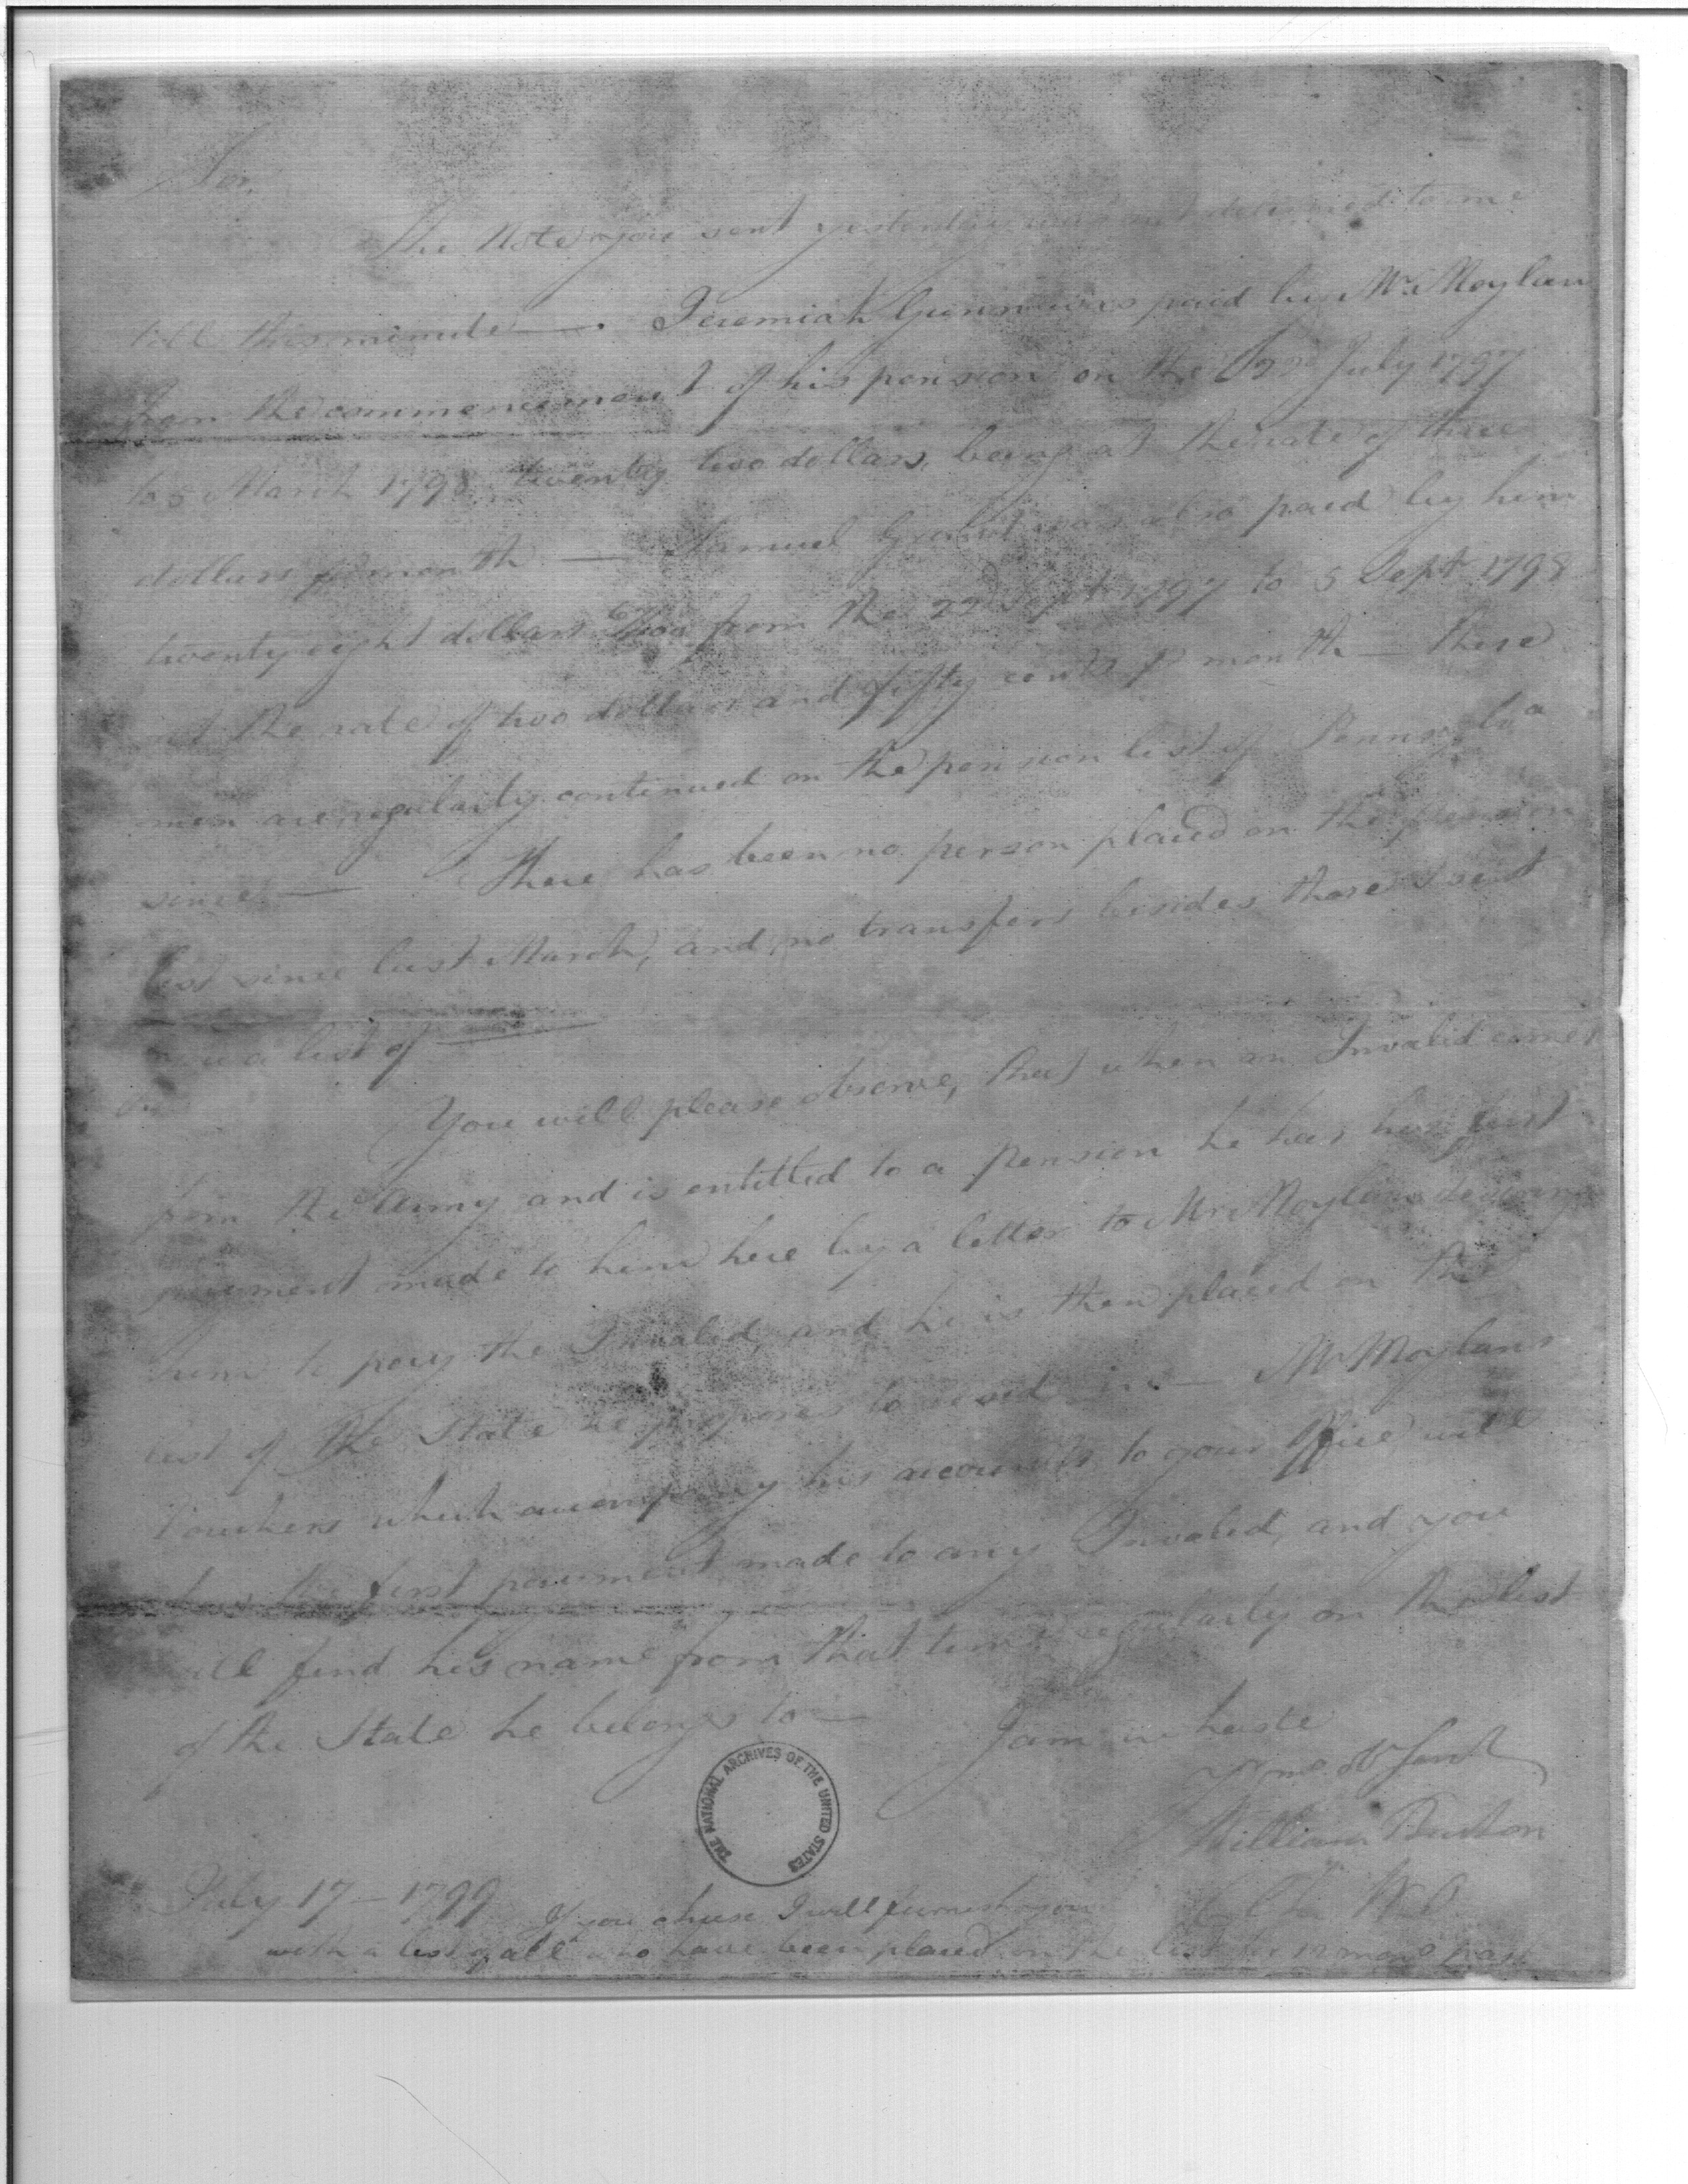 Sir,
The Note you sent yesterday was not delivered to me
till this minute —. Jeremiah Gunn was paid by Mr. Moylan
from the commencement of his pension on the 22d July 1797
to 5 March 1798, twenty two dollars, being at the rate of three
dollars p month — Samuel was also paid by him
twenty eight dollars from the 22d Sept 1797 to 5 Sept 1798
at the rate of two dollars and fifty cents p month — these
men are regularly continued on the pension list of Pennsylva
since — There has been no person placed on the pension
list since last March, and no transfers besides those I sent
you a list of
You will please observe, that when an Invalid comes
from the Army and is entitled to a pension he has his first
payment made to him here by a letter to Mr. Moylan desiring
him to pay the Invalid, and he is then placed on the
list of the State he proposes to reside in — Mr Moylans
Vouchers which accompany his accounts to your Office will
shew the first payment made to any Invalid, and you
will find his name from that time regularly on the list
of the State he belongs to — I am in haste
Yr mo Ob Servt
William
July 17 — 1799
If you chuse I will furnish you
with a list of all who have been placed on the list for 12 mons past
THE NATIONAL ARCHIVES OF THE UNITED STATES